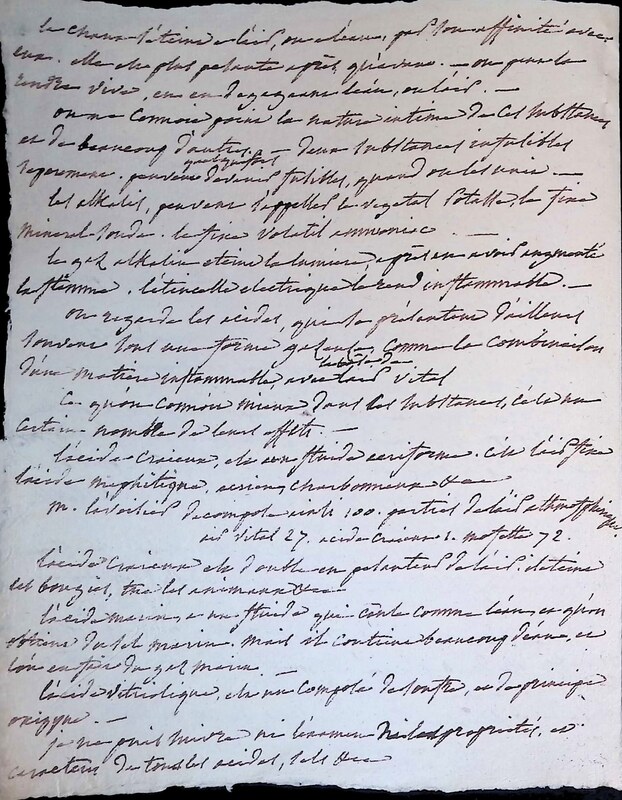 la chaux s'éteint à l'air, ou à l'eau, par son affinité avec
eux. elle est plus pesante après qu'avant. — on peut la
rendre vive, en en dégageant l'eau, ou l'air. —
on ne connoit point la nature intime de ces substances
et de beaucoup d'autres. — deux substances infusibles
séparément, peuvent quelquefois devenir fusibles, quand on les unit. —
les alkalis, peuvent s'appeller le vegetal potasse, le fixe
mineral soude. le fixe volatil ammoniac. —
le gaz alkalin eteint la lumiere, après en avoir augmenté
la flamme. l'étincelle electrique le rend inflammable. —
on regarde les acides, qui se présentent d'ailleurs
souvent sous une forme gazeuse, comme la combinaison
d'une matiere inflammable, avec l'air vital
Ce qu'on connoit mieux dans ces substances, c'est un
certain nombre de leurs effets. —
l'acide craieux, est un fluide aeriforme. c'est l'air fixe
l'acide mephitique, aerien, charbonneux &ca
m. lavoisier decompose ainsi 100. parties de l'air athmospherique.
air vital 27, acide craieux 1. mofette 72.
l'acide craieux est double en pesanteur de l'air. il eteint
les bougies, tue les animaux &ca
l'acide marin, est un fluide qui coule comme l'eau, et qu'on
obtient du sel marin. mais il contient beaucoup d'eau, et
l'on en tire du gaz marin
l'acide vitriolique, est un composé de soufre, et de principe
oxigyne. —
je ne puis suivre ni l'examen ni les propriétés, et
caracteres de tous les acides, sels &ca